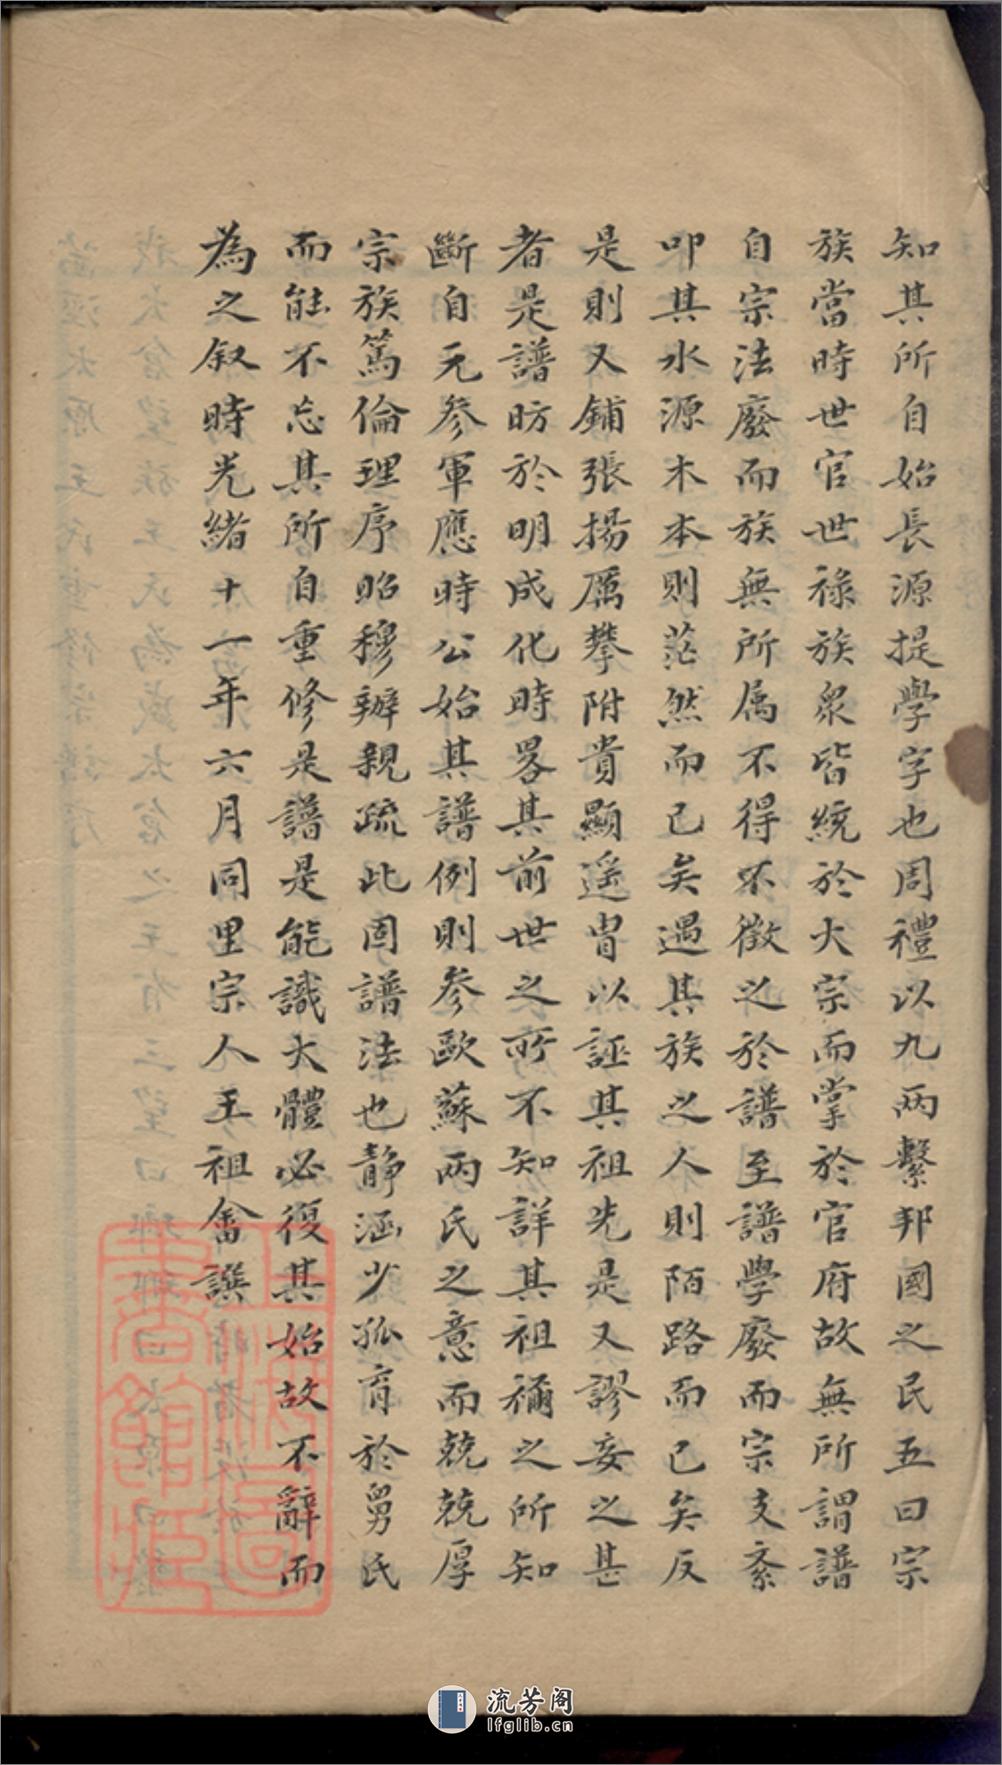 知其所自始長源提學字也周禮以九兩繫邦國之民五曰宗
族當時世官世祿族眾皆統於大宗而掌於官府故無所謂譜
自宗法廢而族無所属不得不徵之於譜至譜學廢而宗支紊
叩其水源木本則茫然而已矣遇其族之人則陌路而已矣反
是則又鋪張揚厲攀附貴顯遥冑以誣其祖先是又謬妄之甚
者是譜昉於明成化時畧其前世之所不知詳其祖禰之所知
斷自元參軍應時公始其譜例則參歐蘇兩氏之意而兢兢厚
宗族篤倫理序昭穆辦親疏此固譜法也靜涵少孤育於舅氏
而能不忘其所自重修是譜是能識大體必復其始故不辭而
為之叙時光緒十一年六月同里宗人王祖畬譔
上海圖
書館藏
流芳阁
lfglib.cn